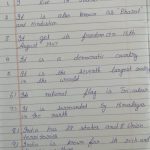 2) It is also known as Bharat
and Hindustan
3) It got its freedom on 15th
August 1947
4) It is a democratic country
5) It is the seventh largest
in the world
6) It national flag is Tri colour
7) It is surrounded by Himalayas
in the north
8) India has 28 states and 8 Union
9) India is known for its rich and